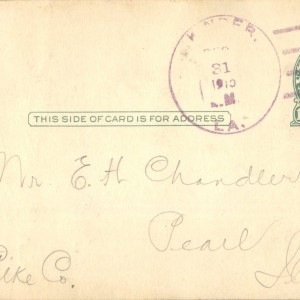 31
1910
LA.
THIS SIDE OF CARD IS FOR ADDRESS
Mr. E. H. Chandler
Pearl
Pike Co.